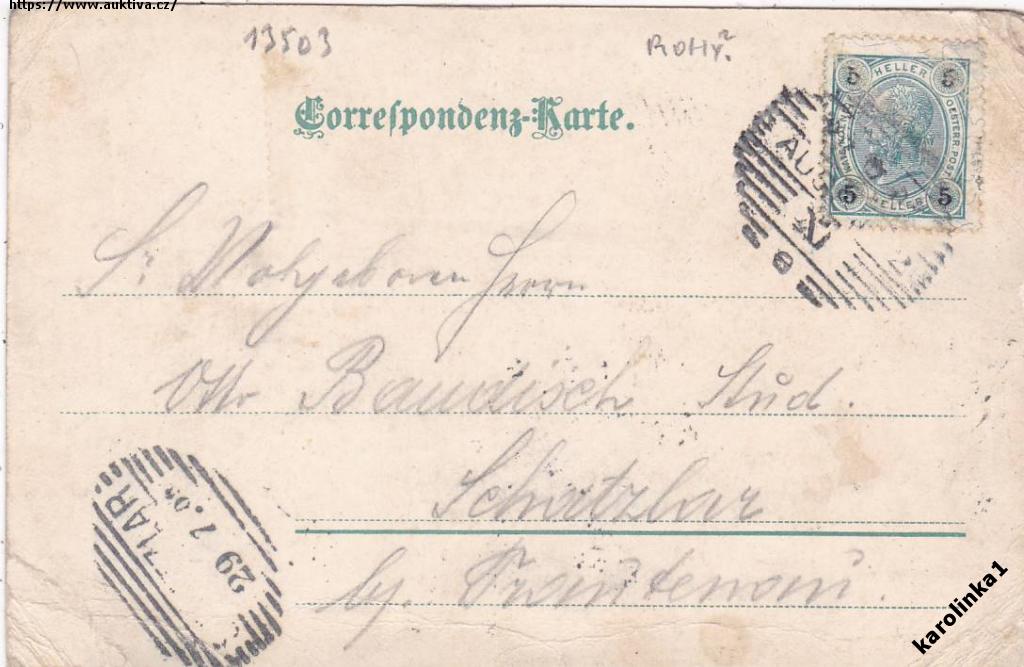 https://www.auktiva.cz/
13503
ROHY?
Correspondenz-Karte.
5 HELLER 5
OESTERR. POST
5 HELLER 5
AUS
Sr Wohgeboren Herrn
Otto Baudisch Stud.
Schatzlar
bj. Trautenau.
ZLAR
29 7.0
karolinka1